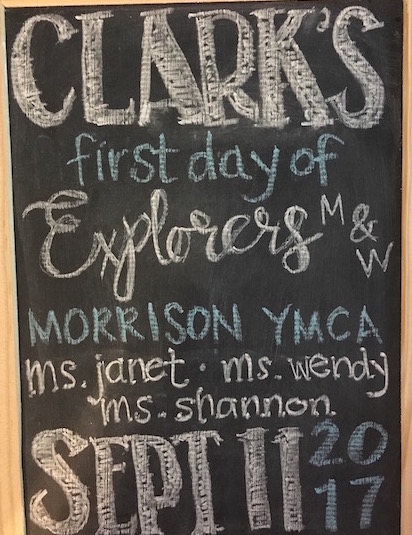 CLARK'S
first day of
Explorers M & W
MORRISON YMCA
ms. janet · ms. wendy
ms. shannon
SEPT 11 2017